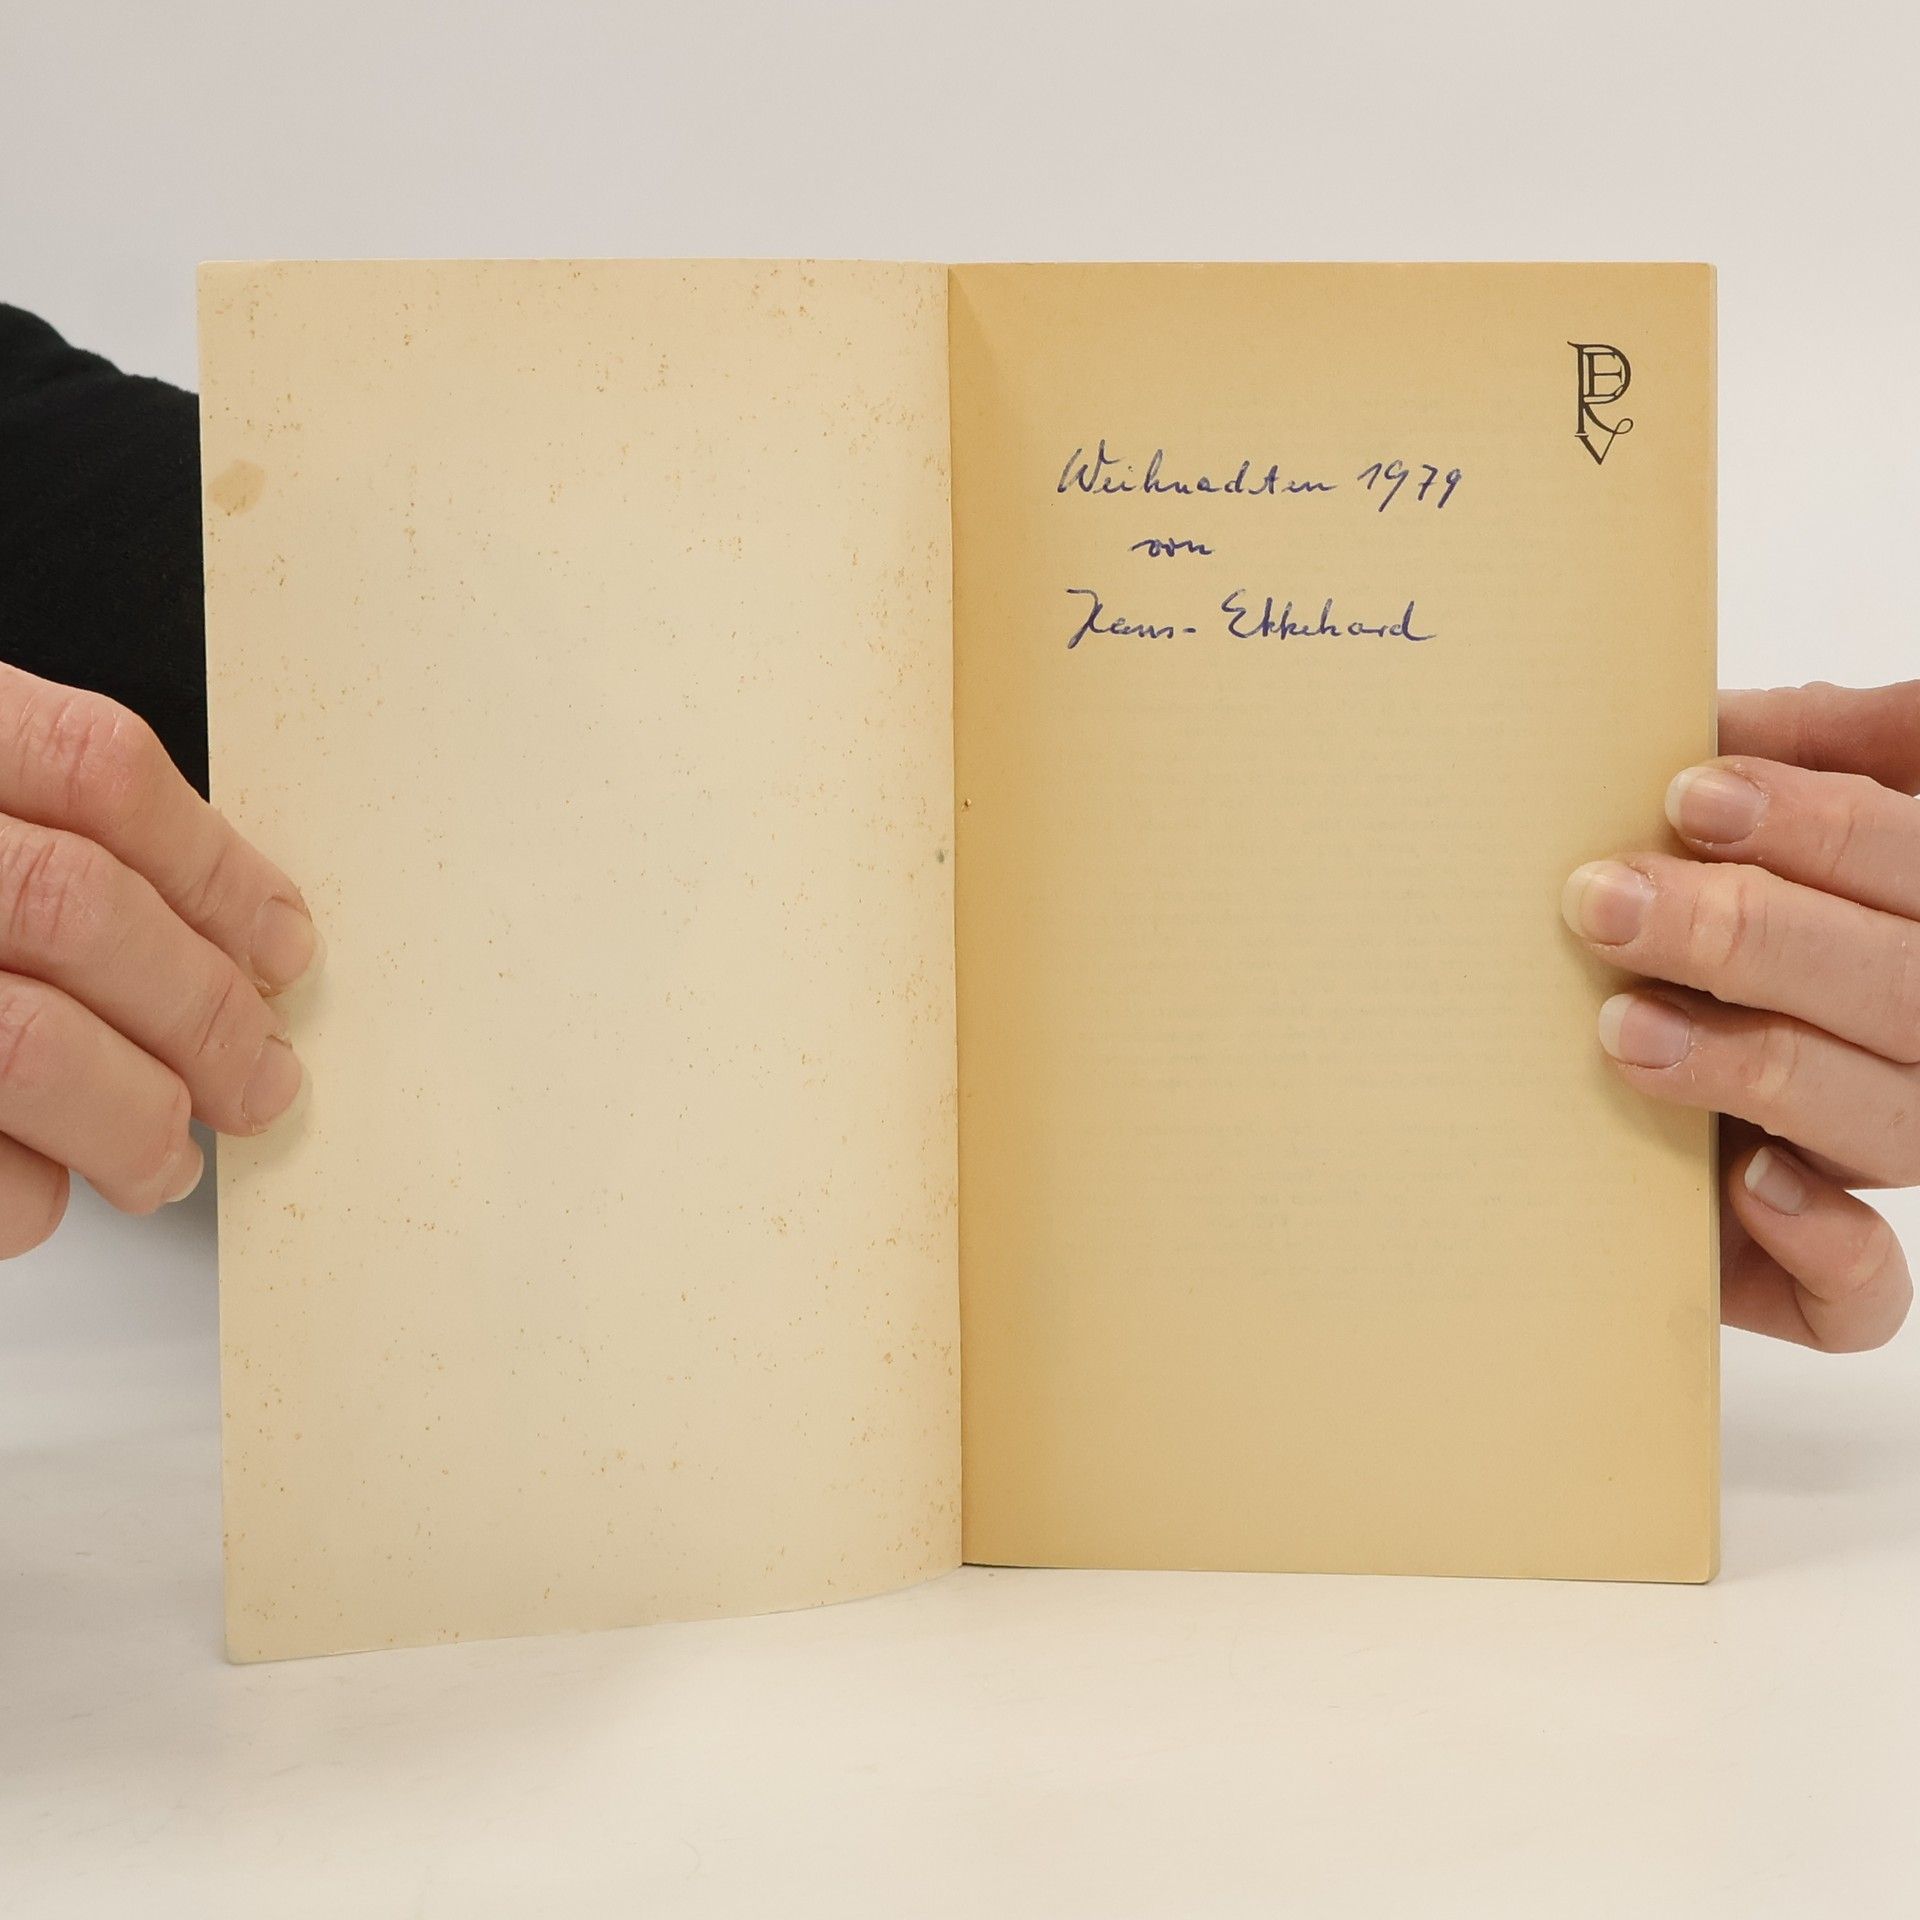 PEV
Weihnachten 1979
von
Hans-Ekkehard